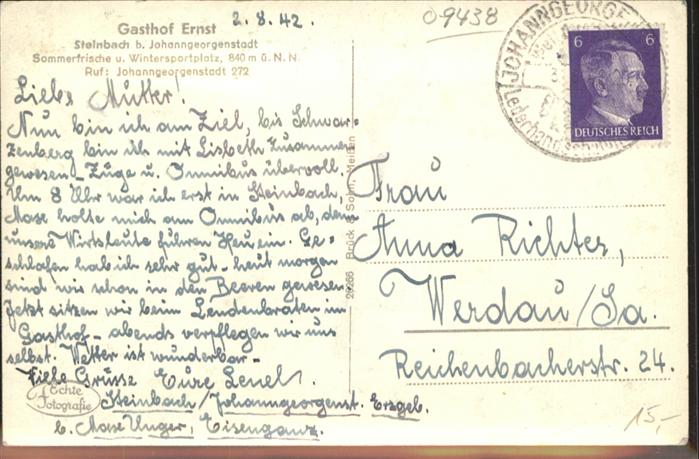 Gasthof Ernst
Steinbach b. Johanngeorgenstadt
Sommerfrische u. Wintersportplatz, 840 m ü. N. N.
Ruf: Johanngeorgenstadt 272
2.8.42.
09438
JOHANNGEORGE
6 6
DEUTSCHES REICH
Liebe Mutter!
Nun bin ich am Ziel, bis Schwar-
zenberg bin ich mit Lisbeth zusammen
gewesen - Züge u. Omnibus übervoll.
Um 8 Uhr war ich erst in Steinbach,
Mase holte mich am Omnibus ab, denn
unsere Wirtsleute führen Heu ein. Ge-
schlafen hab ich sehr gut - heut morgen
sind wir schon in den Beeren gewesen.
Jetzt sitzen wir beim Lendenbraten im
Gasthof - abends verpflegen wir uns
selbst. Wetter ist wunderbar -
Viele Grüsse Eure Lenel.
Steinbach/Johanngeorgenst. Erzgeb.
b. Mase Unger, Eisenganz.
Echte
Fotografie
Brück & Sohn, Meißen
Frau
Anna Richter,
Werdau/Sa.
Reichenbacherstr. 24.
15,-